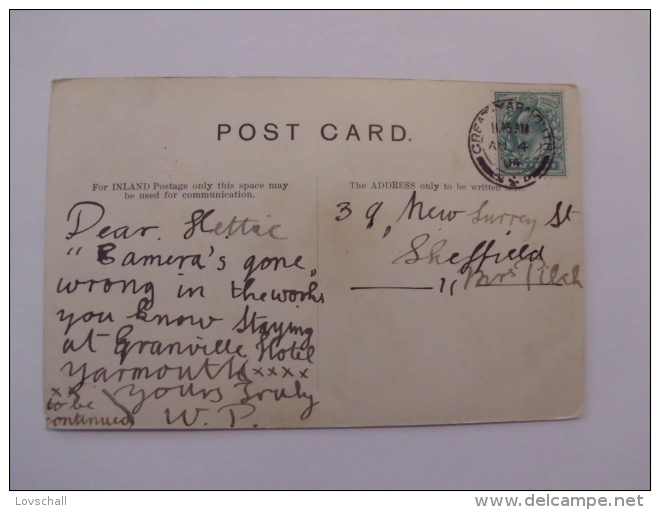 POST CARD.
For INLAND Postage only this space may
be used for communication.
The ADDRESS only to be written
GREAT YARMOUTH
AU 4
04
Dear Hettie
"Camera's gone"
wrong in the works
you know Staying
at Granville Hotel
Yarmouth xxxx
xx yours Truly
to be
continued
W. P.
39, New Surrey St
Sheffield
Lovschall
delcampe.net